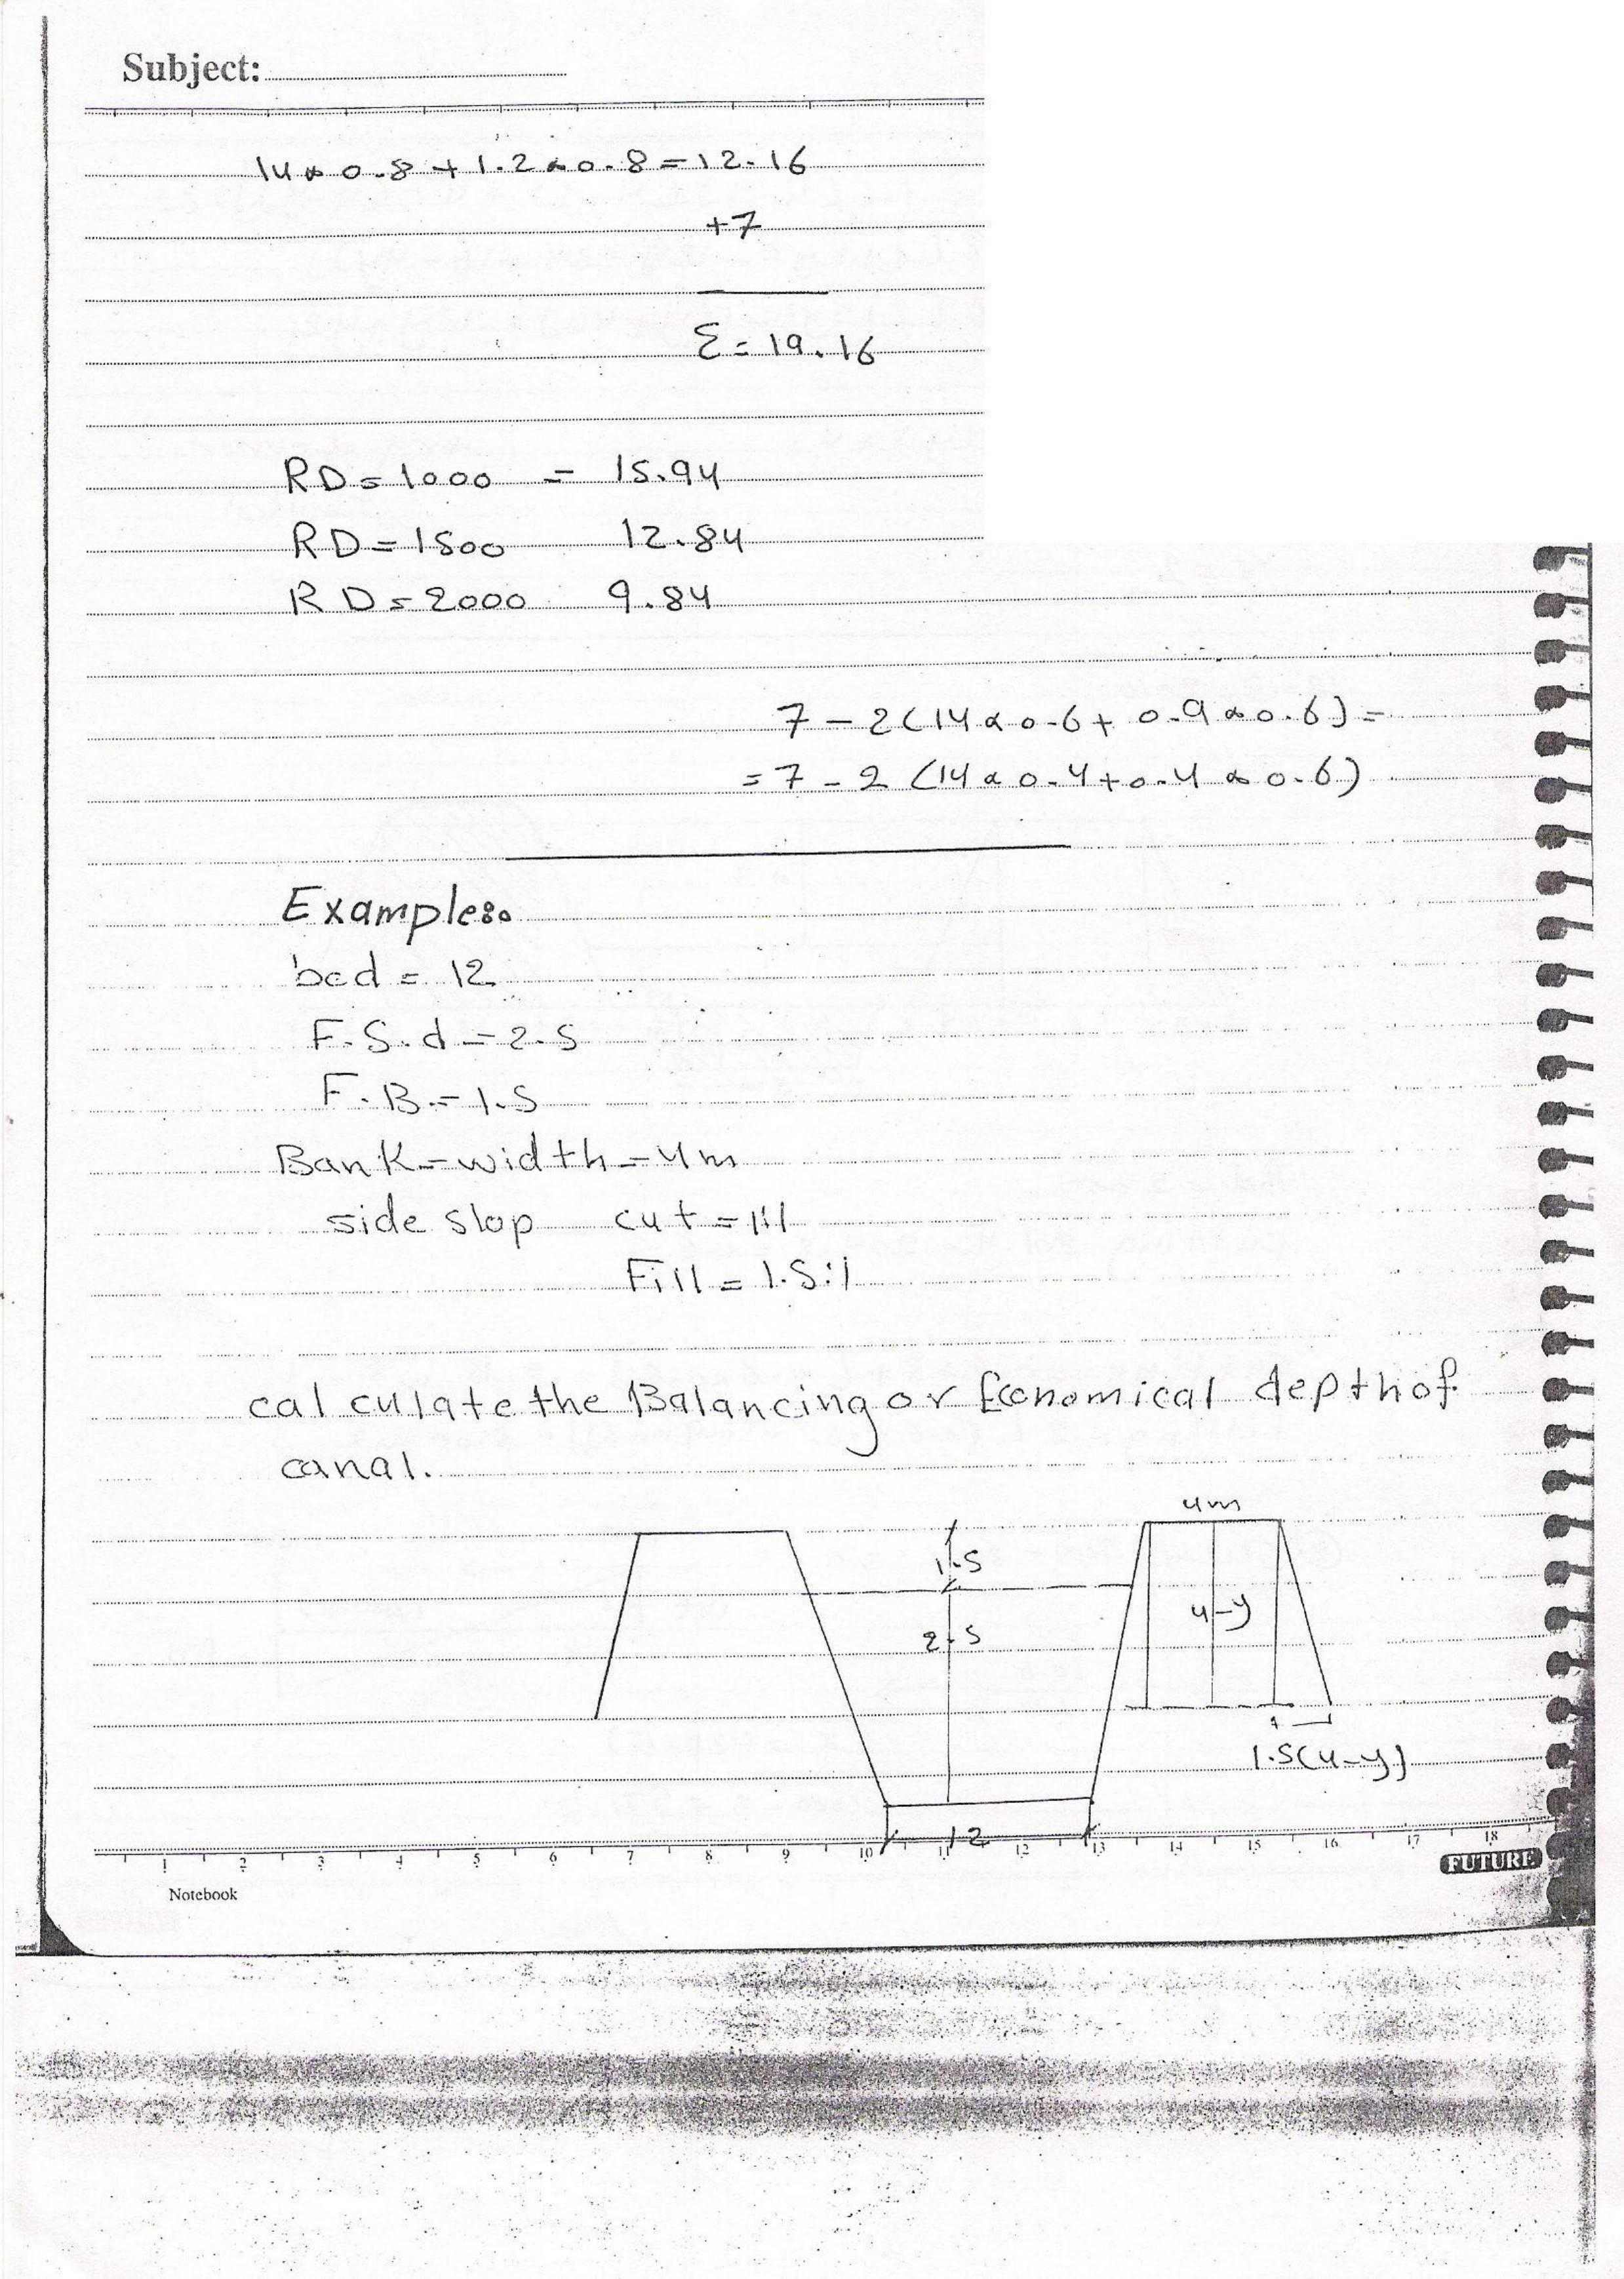 Subject:
14 * 0.8 + 1.2 * 0.8 = 12.16
+7
Σ = 19.16
RD = 1000 = 15.94
RD = 1500 12.84
RD = 2000 9.84
7 - 2(14 * 0.6 + 0.9 * 0.6) =
= 7 - 2 (14 * 0.4 + 0.4 * 0.6)
Example:
bed = 12
F.S.d = 2.5
F.B. = 1.5
Bank - width = 4m
side slop cut = 1:1
Fill = 1.5:1
calculate the Balancing or Economical depth of
canal.
4m
1.5
4-y
2.5
1.5(4-y)
12
1 2 3 4 5 6 7 8 9 10 11 12 13 14 15 16 17 18
FUTURE
Notebook